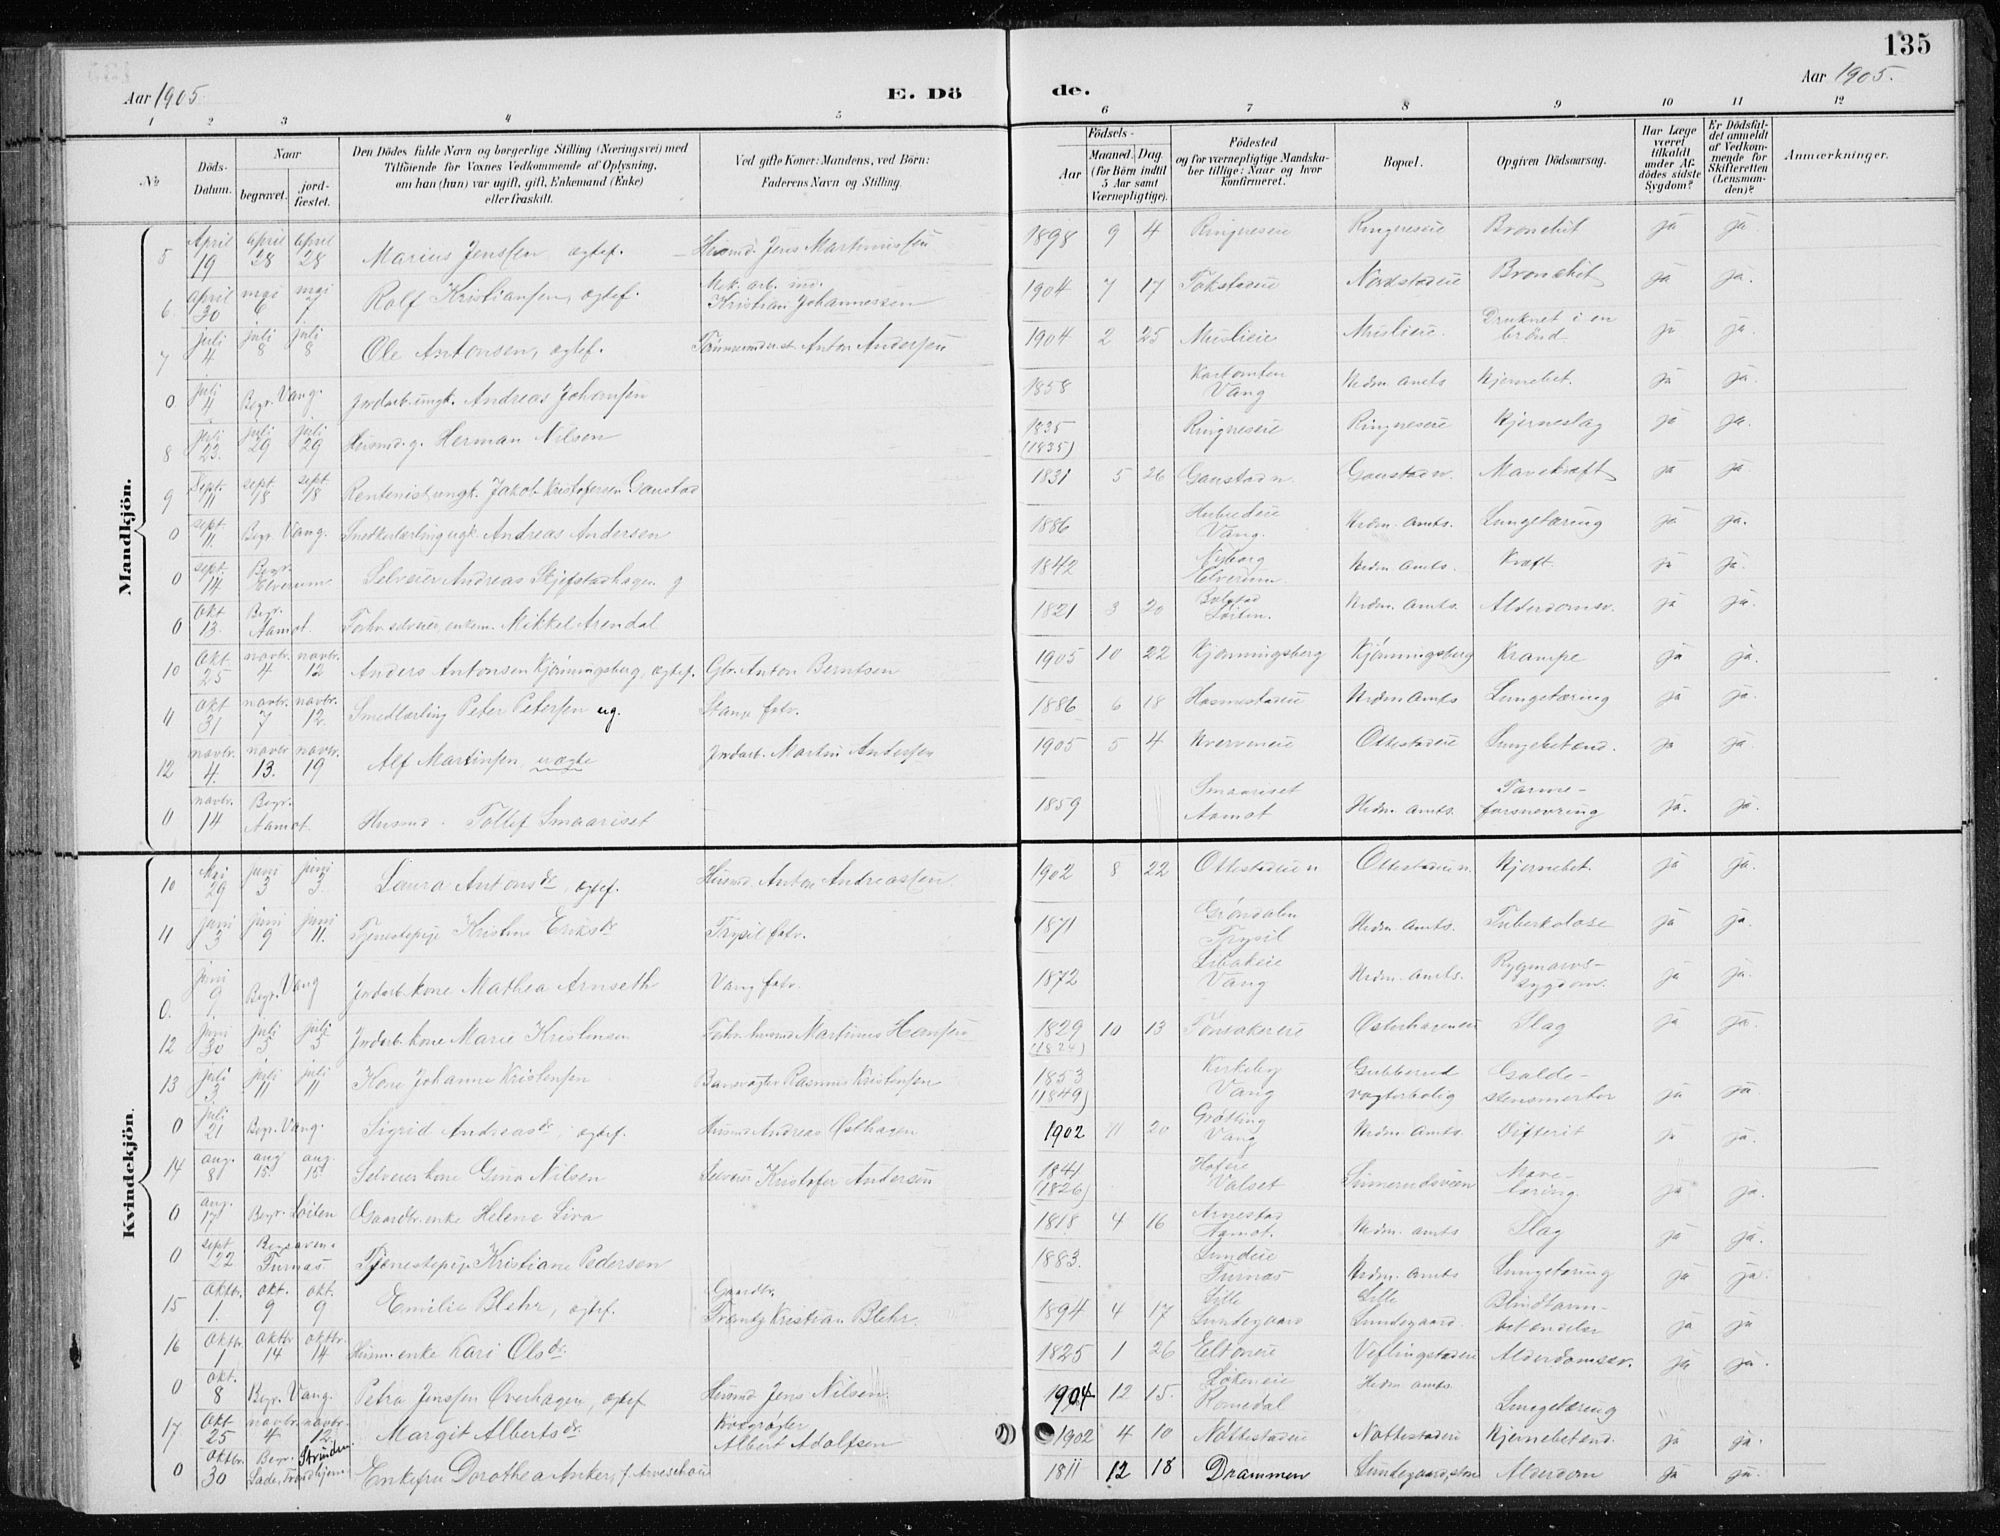 135
Aar 1905.
E. Döde.
Aar 1905.
1 2 3 4 5 6 7 8 9 10 11 12
No
Döds-Datum.
Naar
begravet.
jordfæstet.
Den Dödes fulde Navn og borgerlige Stilling (Næringsvei) med
Tilföiende för Voxnes Vedkommende af Oplysning,
om han (hun) var ugift, gift, Enkemand (Enke)
eller fraskilt.
Ved gifte Koner: Mandens, ved Börn:
Faderens Navn og Stilling.
Födsels-
Aar
Maaned. Dag
(for Börn indtil
5 Aar samt
Værnepligtige).
Födested
og for værnepligtige Mandska-
ber tillige: Naar og hvor
konfirmeret.
Bopæl.
Opgiven Dödsaarsag.
Har Læge
været
tilkaldt
under Af-
dödes sidste
Sygdom?
Er Dödsfal-
det anmeldt
af Vedkom-
mende for
Skifteretten
(Lensman-
den)?
Anmærkninger.
Mandkjön.
5 April 19 April 28 April 28 Marius Jenssen, ægtef. Husmd. Jens Martinussen 1898 9 4 Ringneseie Ringneseie Bronchit ja ja.
6 April 30 mai 6 mai 7 Rolf Kristiansen, ægtef. Mek. arb. Kristian Johannessen 1904 7 17 Tokstadeie Nordstadeie Bronchit ja ja.
7 juli 4 juli 8 juli 8 Ole Antonsen, ægtef. Anton Andersen 1904 2 25 Muslieie Muslieie Druknet i en brønd ja ja.
0 juli 4. Begr. Vang. Jordarb. ungk. Andreas Johansen 1858 Vang Hedm. Amts Hjernebet. ja ja.
8 juli 23. juli 29 juli 29 Husmd. g. Herman Nilsen 1835 (1835) Ringneseie Ringneseie Hjerneslag ja ja.
9 Sept. 11 sept 18 sept 18 Rentenist, ungk. Jakob Kristofersen Gaustad 1831 5 26 Gaustad n. Gaustad n. Mavekræft ja ja.
0 sept. 11. Begr. Vang. Snedkerlærling ugk. Andreas Andersen 1886 Vang. Hedm. Amts. Lungetæring ja ja.
0 sept. 14 Begr. Elverum Selveier Andreas Skjefstadhagen g 1842 Nyborg Elverum Hedm. Amts. Kræft. ja ja.
0 Okt. 13. Begr. Aamot. Forhv. selveier, enkem. Mikkel Arendal 1821 3 20 Løiten. Hedm. Amts. Alderdomsv. ja ja.
10 Okt. 25 novbr. 4 novbr. 12 Anders Antonsen Kjønningsberg, ægtef. Gbr. Anton Berntsen 1905 10 22 Kjønningsberg Kjønningsberg Krampe ja ja.
11 Okt 31 novbr. 7 novbr. 12. Smedlærling Peter Petersen ug. Stange fatv. 1886 6 18 Hosmestadeie Hedm Amts Lungetæring ja ja.
12 novbr. 4. novbr 13. novbr. 19 Alf Martinsen, uægte Jordarb. Martin Andersen 1905 5 4 Kverneeie Ottestadeie Lungebetænd. ja ja
0 novbr. 14 Begr. Aamot. Husmd. Tollef Smaariset 1859 Smaariset Aamot Hedm. Amts. Tarmeforsnevring ja. ja.
Kvindekjön.
10 Mai 29 juni 3 juni 3. Laura Antonsdr, ægtef. Husmd. Anton Andreassen 1902 8 22 Ottestadeie n Ottestadeie n. Hjernebet. ja ja.
11 juni 3 juni 9 juni 11. Tjenestepige Kristine Eriksdr Trysil fatv. 1871 Grøndalen Trysil Hedm. Amts. Tuberkolose ja ja.
0. juni 9. Begr. Vang Jordarb. kone Mathea Arnseth Vang fatv. 1872 Vang Hedm. Amts. Rygmarvssygdom. ja ja.
12 juni 30 juli 5 juli 5 Jordarb. kone Marie Kristensen Forhv. husmd Martinus Hansen 1829 (1824) 10 13 Torsakereie Østerhageneie Slag ja ja.
13 juli 3 juli 11 juli 11 Kone Johanne Kristensen Banevogter Rasmus Kristensen 1853 (1849) Kirkeby Vang Gubberud vogterbolig Galdestenssmerter ja ja
0 juli 21 Begr. Vang. Sigrid Andreasdr, ægtef. Husmd Andreas Østhagen 1902 11 20 Grøtting Vang Hedm. Amts. Difterit ja ja.
14 aug. 8 aug 15. aug. 15. Selveierkone Gina Nilsen Selveier Kristofer Andersen 1841 (1826) Hofeie Valset Mavetæring. ja ja.
0 aug. 17 Begr. Løiten Gaardbr. enke Helene Liva 1818 4 16 Arnestad Aamot. Hedm. Amts Slag ja ja.
0 sept. 22 Furnæs. Tjenestepige Kristiane Pedersen 1883. Lundeie Furnæs Hedm. Amts Lungetæring ja ja.
15 Oktbr. 1. Okt. 9 Okt. 9 Emilie Blehr, ægtef. Gaardbr. Frantz Kristian Blehr. 1894 4 17 Lille Sundegaard Lille Sundegaard. Blindtarmbetændelse ja ja
16 Oktbr. 1 Oktbr 14 Oktbr 14 Husm. enke Kari Olsdr. 1825 1 26 Eltoneie Veflingstadeie Alderdomsv. ja ja.
0 Okt. 8 Begr. Vang. Petra Jenssen Øverhagen, ægtef Husmd Jens Nilsen. 1904 12 15. Løkeneie Romedal Hedm. Amts. Lungetæring
17 Okt 25 novbr. 4 novbr. 12. Margit Albertsdr. Albert Adolfsen 1902 4 10 Nottestadeie Nottestadeie Hjernebetænd. ja ja.
0 Oktbr. 30 Begr. Strinden Lade, Trondhjem Enkefru Dorothea Anker, f. Arveschou 1811 12 18 Drammen Sundegaard, store Alderdom ja ja.